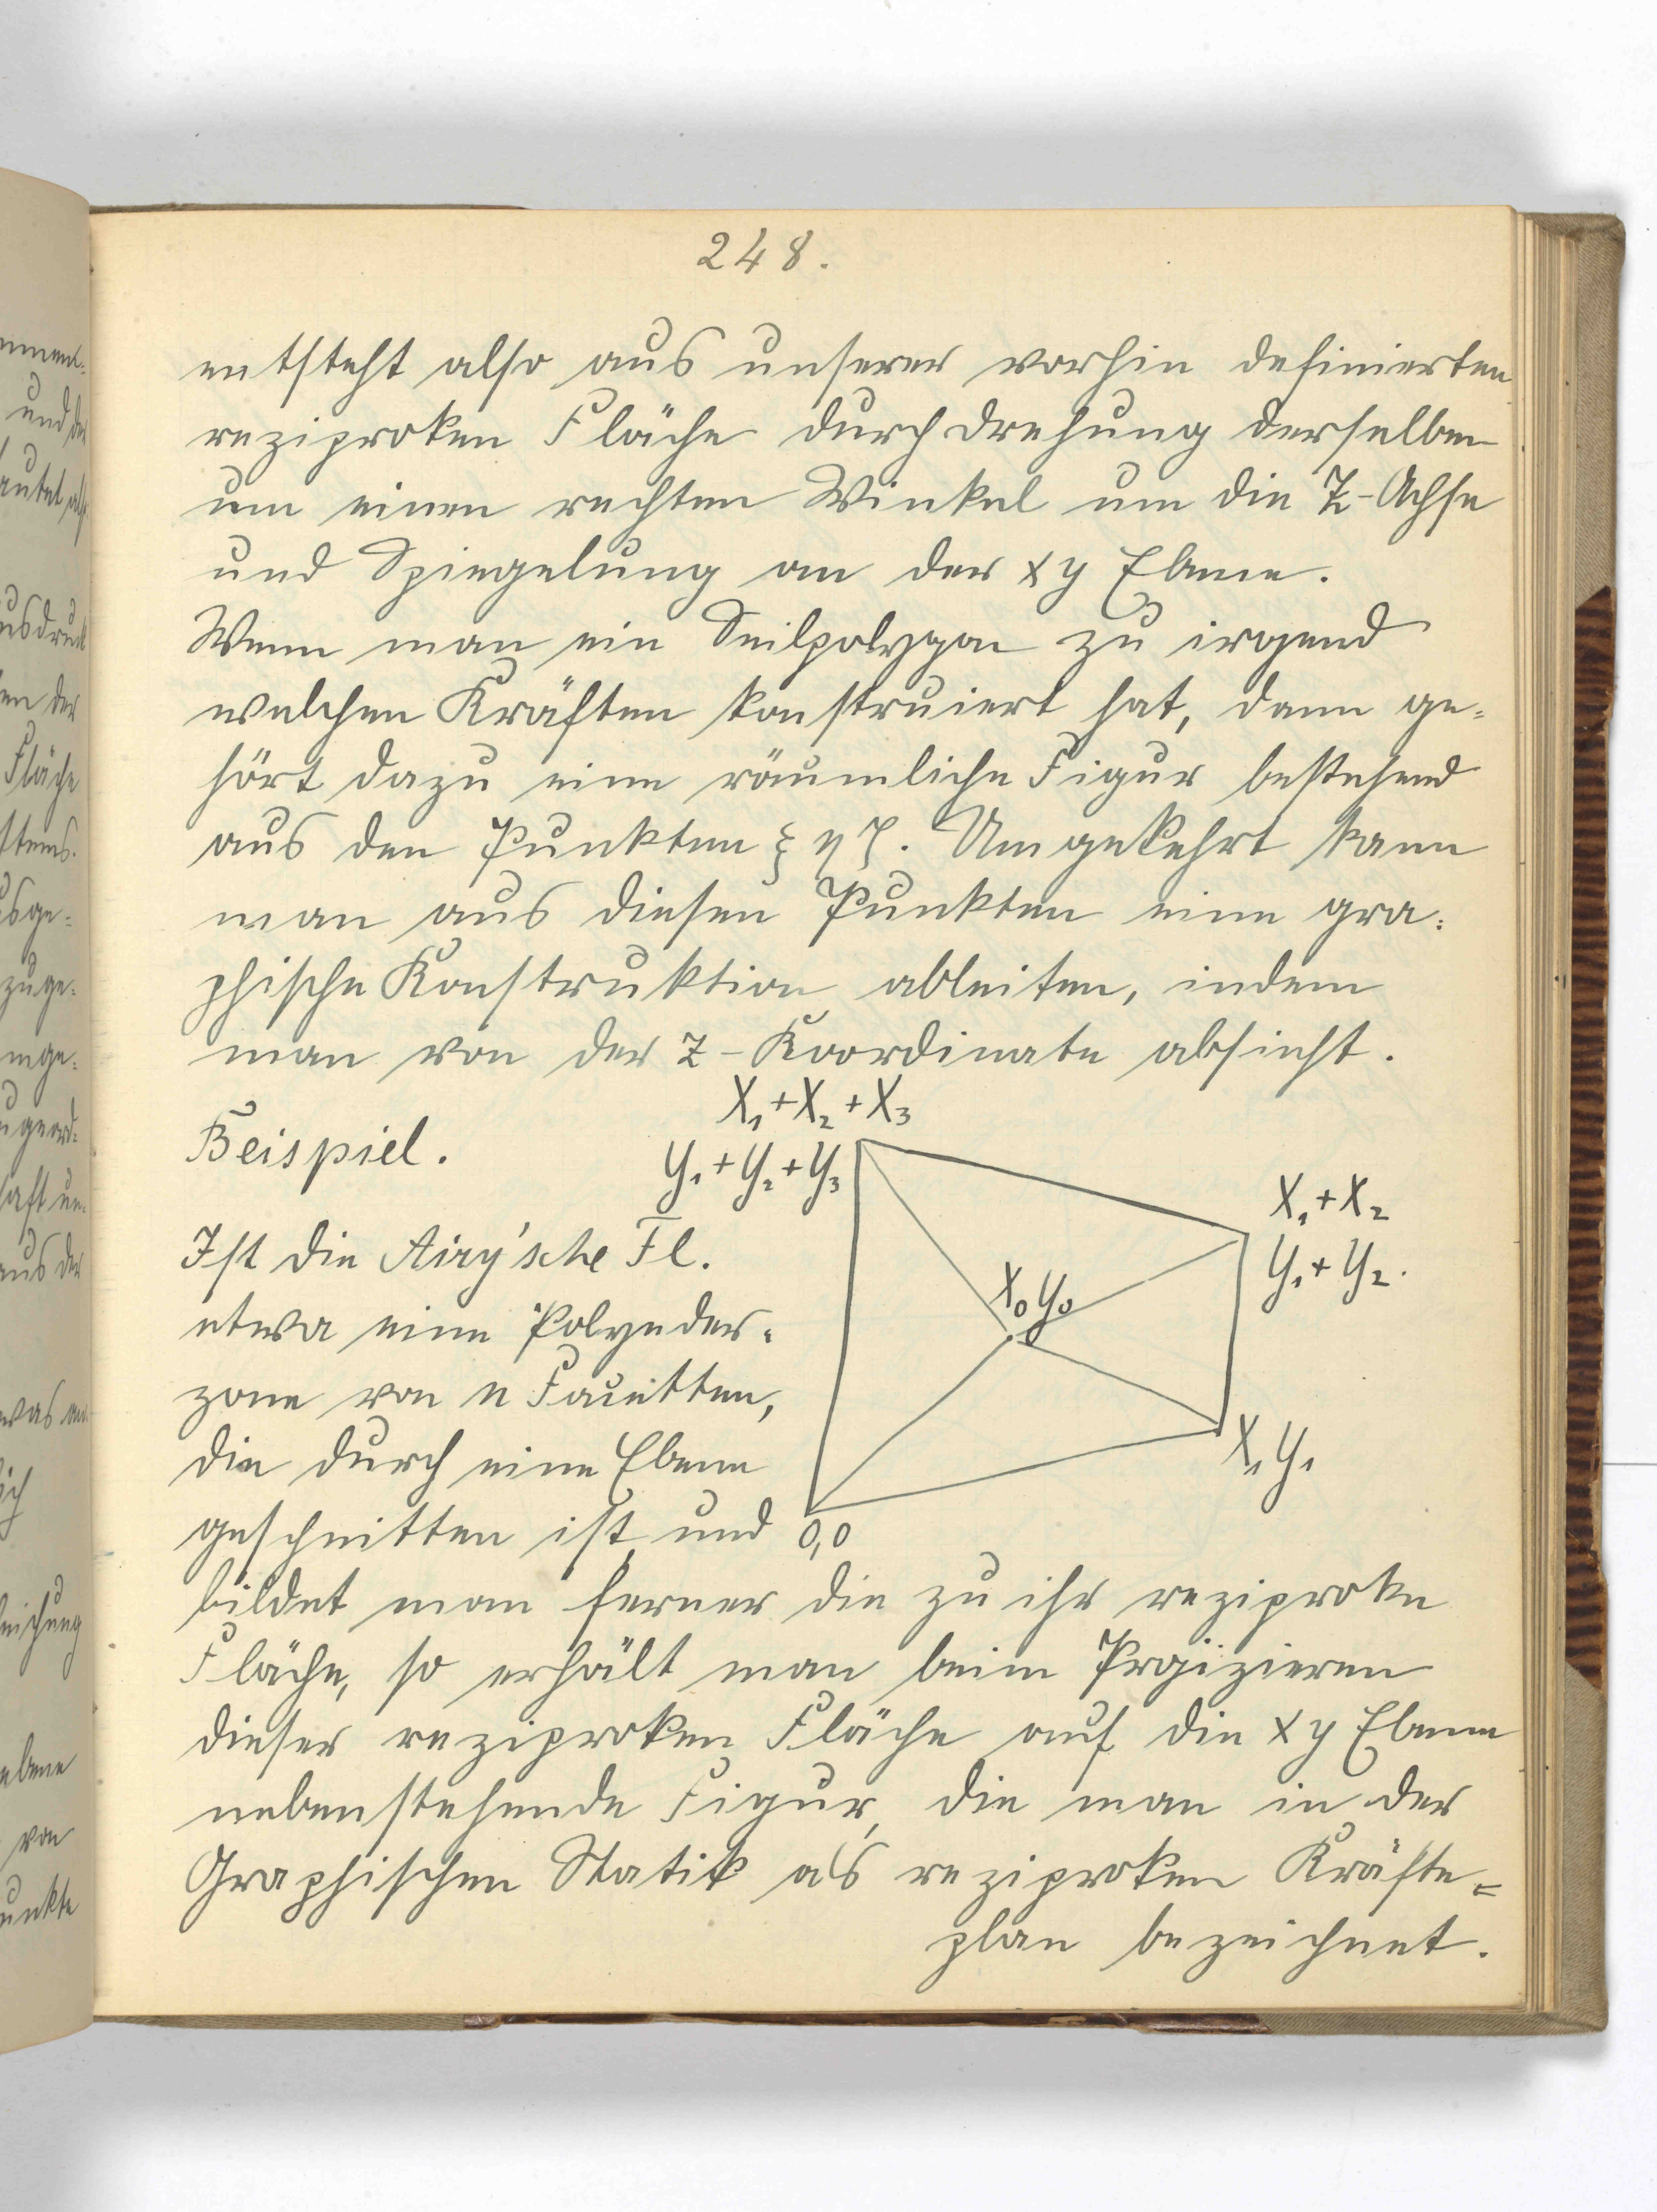 248.
entsteht also aus unserer vorhin definierten
reziproken Fläche durch drehung derselben
um einen rechten Winkel um die Z-Achse
und Spiegelung an der xy Ebene.
Wenn man ein Seilpolygon zu irgend
welchen Kräften konstruiert hat, dann ge-
hört dazu eine räumliche Figur bestehend
aus den Punkten ξ η ζ. Umgekehrt kann
man aus diesen Punkten eine gra-
phische Konstruktion ableiten, indem
man von der z-Koordinate absieht.
X₁+X₂+X₃
Beispiel.
Y₁+Y₂+Y₃
X₁+X₂
Y₁+Y₂.
Ist die Airy'sche Fl.
X₀Y₀
etwa eine Polyeder-
zone von n Facetten,
die durch eine Ebene
X₁Y₁
geschnitten ist, und
0,0
bildet man ferner die zu ihr reziproke
Fläche, so erhält man beim Projizieren
dieser reziproken Fläche auf die xy Ebene
nebenstehende Figur, die man in der
Graphischen Statik als reziproken Kräfte-
plan bezeichnet.